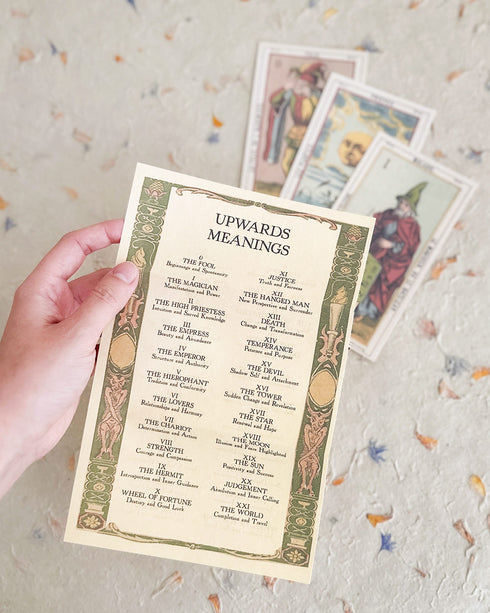 UPWARDS
MEANINGS
0
THE FOOL
Beginnings and Spontaneity
I
THE MAGICIAN
Manifestation and Power
II
THE HIGH PRIESTESS
Intuition and Sacred Knowledge
III
THE EMPRESS
Beauty and Abundance
IV
THE EMPEROR
Structure and Authority
V
THE HIEROPHANT
Tradition and Conformity
VI
THE LOVERS
Relationships and Harmony
VII
THE CHARIOT
Determination and Action
VIII
STRENGTH
Courage and Compassion
IX
THE HERMIT
Introspection and Inner Guidance
X
WHEEL OF FORTUNE
Destiny and Good Luck
XI
JUSTICE
Truth and Fairness
XII
THE HANGED MAN
New Perspective and Surrender
XIII
DEATH
Change and Transformation
XIV
TEMPERANCE
Patience and Purpose
XV
THE DEVIL
Shadow Self and Attachment
XVI
THE TOWER
Sudden Change and Revelation
XVII
THE STAR
Renewal and Hope
XVIII
THE MOON
Illusion and Fears Highlighted
XIX
THE SUN
Positivity and Success
XX
JUDGEMENT
Absolution and Inner Calling
XXI
THE WORLD
Completion and Travel